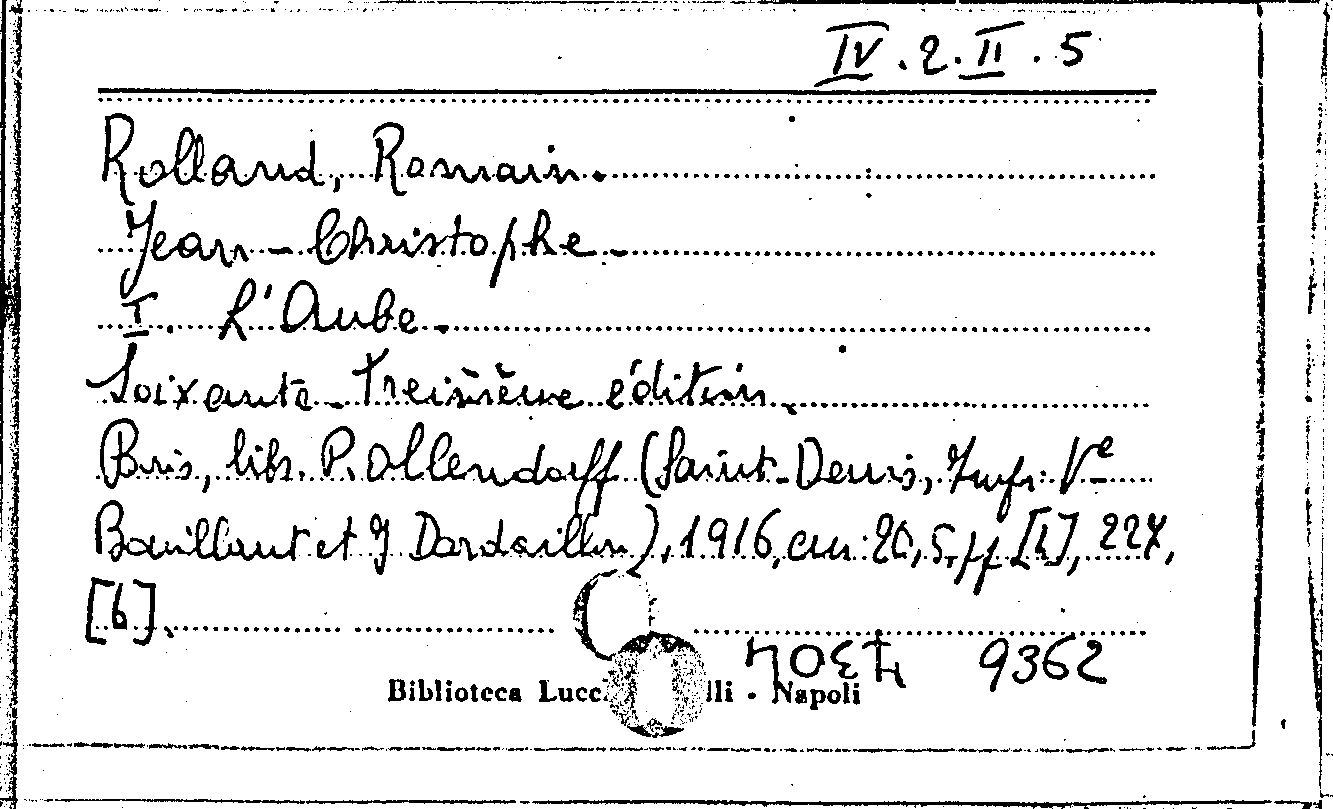 IV.2.II.5
Rolland, Romain.
Jean-Christophe-
I. L'Aube.
Soixante-Treizième édition.
Paris, lib. P. Ollendorff (Saint-Denis, Impr. Ve
Bouillant et J Dardaillon), 1916, cm. 20,5, pp [4], 224,
[6].
9362
Biblioteca Lucc lli - Napoli